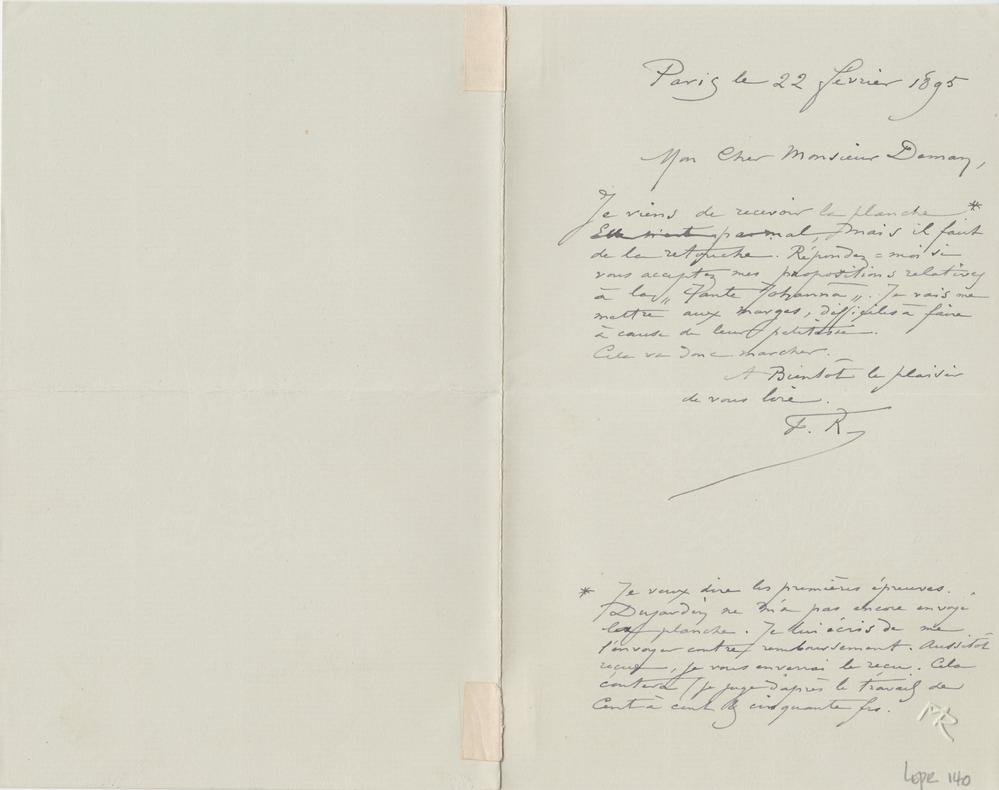 Paris le 22 février 1895
Mon Cher Monsieur Deman,
Je viens de recevoir la planche *
Elle n'est pas mal, mais il faut
de la retouche. Répondez=moi si
vous acceptez mes propositions relatives
à la „ Tante Johanna „. Je vais me
mettre aux marges, difficiles à faire
à cause de leur petitesse.
Cela va donc marcher.
A Bientôt le plaisir
de vous lire.
F. R.
* Je veux dire les premières épreuves.
Dujardin ne m'a pas encore envoyé
la planche. Je lui écris de me
l'envoyer contre remboursement. Aussitôt
reçue, je vous enverrai le reçu. Cela
coutera (je juge d'après le travail de
Cent à cent & cinquante frs.
FR
Lepr 140